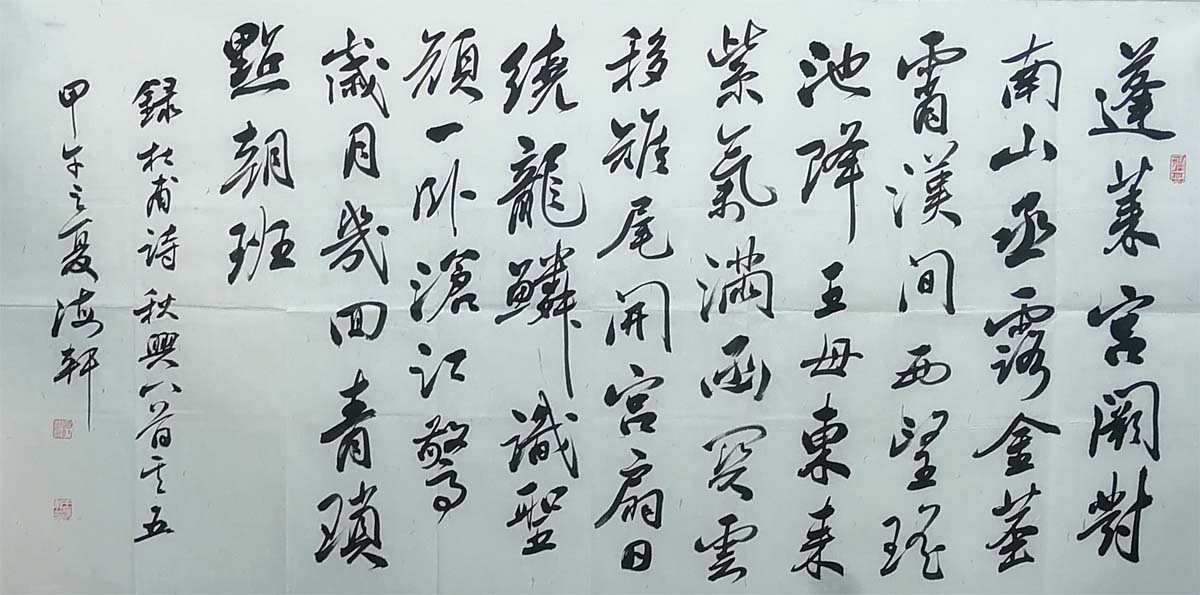 蓬莱宫闕對
南山丞露金莖
霄漢间西望瑶
池降王母東来
紫氣满函関雲
移雉尾開宫扇日
繞龍鱗識聖
顔一卧滄江驚
歲月幾回青瑣
點朝班
録杜甫詩秋興八首其五
甲午之夏海軒